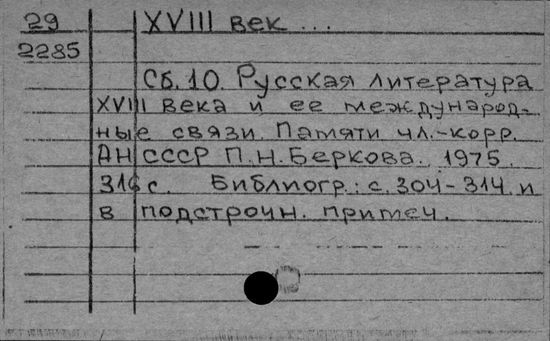 29 XVIII век ...
2285
Сб. 10. Русская литература
XVIII века и ее международ-
ные связи. Памяти чл.-корр.
АН СССР П.Н. Беркова. 1975.
316 с. Библиогр.: с. 304-314 и
в подстрочн. примеч.